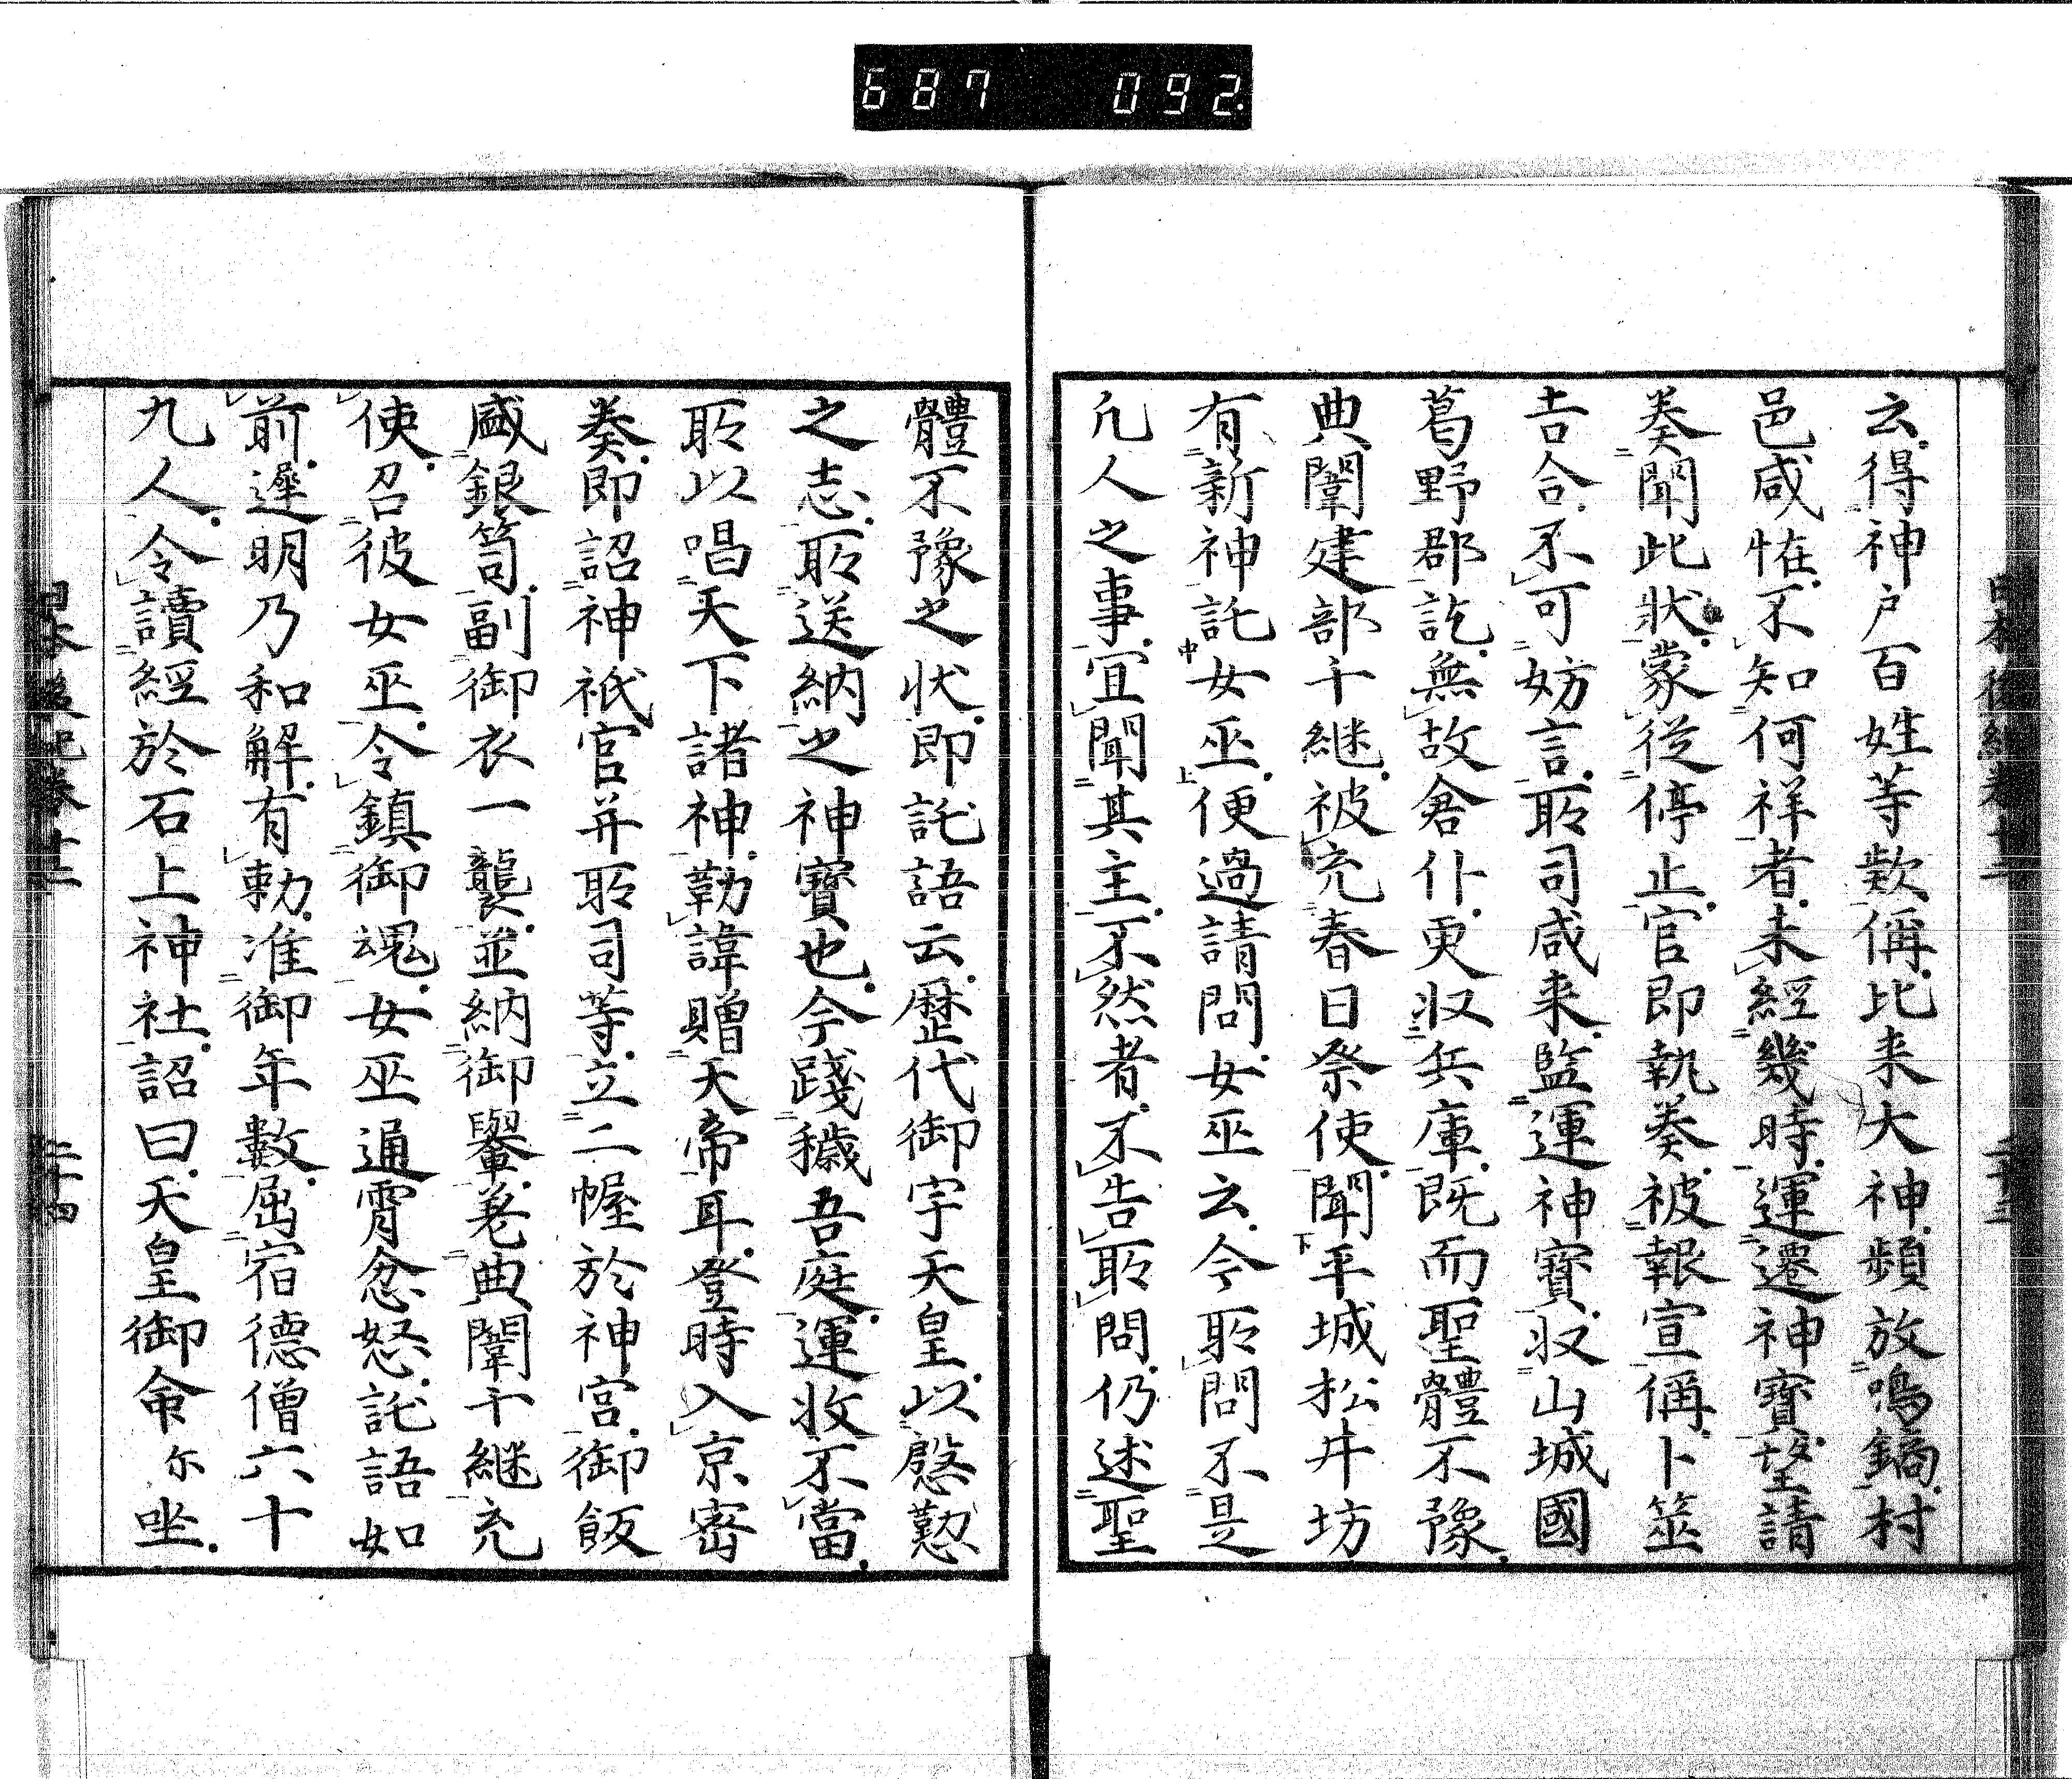 687 092.
日本後紀卷十二 二十三
云得神戸百姓等欵稱比来大神頻放鳴鏑村
邑咸恠不知何祥者未經幾時運遷神寶望請
奏聞此狀蒙從停止官即執奏被報宣稱卜筮
吉合不可妨言所司咸来監運神寶収山城國
葛野郡訖無故倉仆更収兵庫既而聖體不豫
典闈建部千継被充春日祭使聞平城松井坊
有新神託女巫便過請問女巫云今所問不是
凡人之事宜聞其主不然者不告所問仍述聖
體不豫之状即託語云歴代御宇天皇以慇懃
之志所送納之神寶也今踐穢吾庭運收不當
所以唱天下諸神勒諱贈天帝耳登時入京密
奏即詔神祇官并所司等立二幄於神宮御飯
盛銀笥副御衣一襲並納御轝差典闈千継充
使召彼女巫令鎮御魂女巫通霄忿怒託語如
前遲明乃和解有勅准御年數屈宿德僧六十
九人令讀經於石上神社詔曰天皇御命尓坐
日本後紀卷十二 二十四